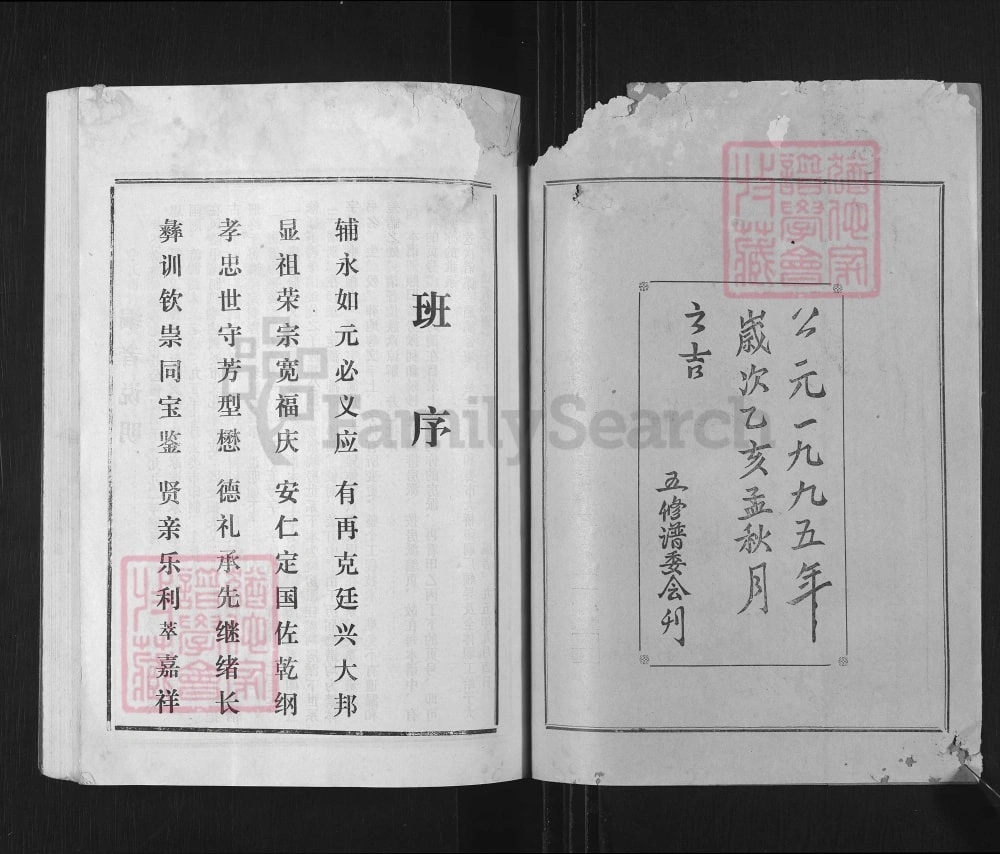 公元一九九五年
歲次乙亥孟秋月
之吉
五修谱委会刋
班序
辅永如元必义应 有再克廷兴大邦
显祖荣宗宽福庆 安仁定国佐乾纲
孝忠世守芳型懋 德礼承先继绪长
彝训钦崇同宝鉴 贤亲乐利萃嘉祥
FamilySearch